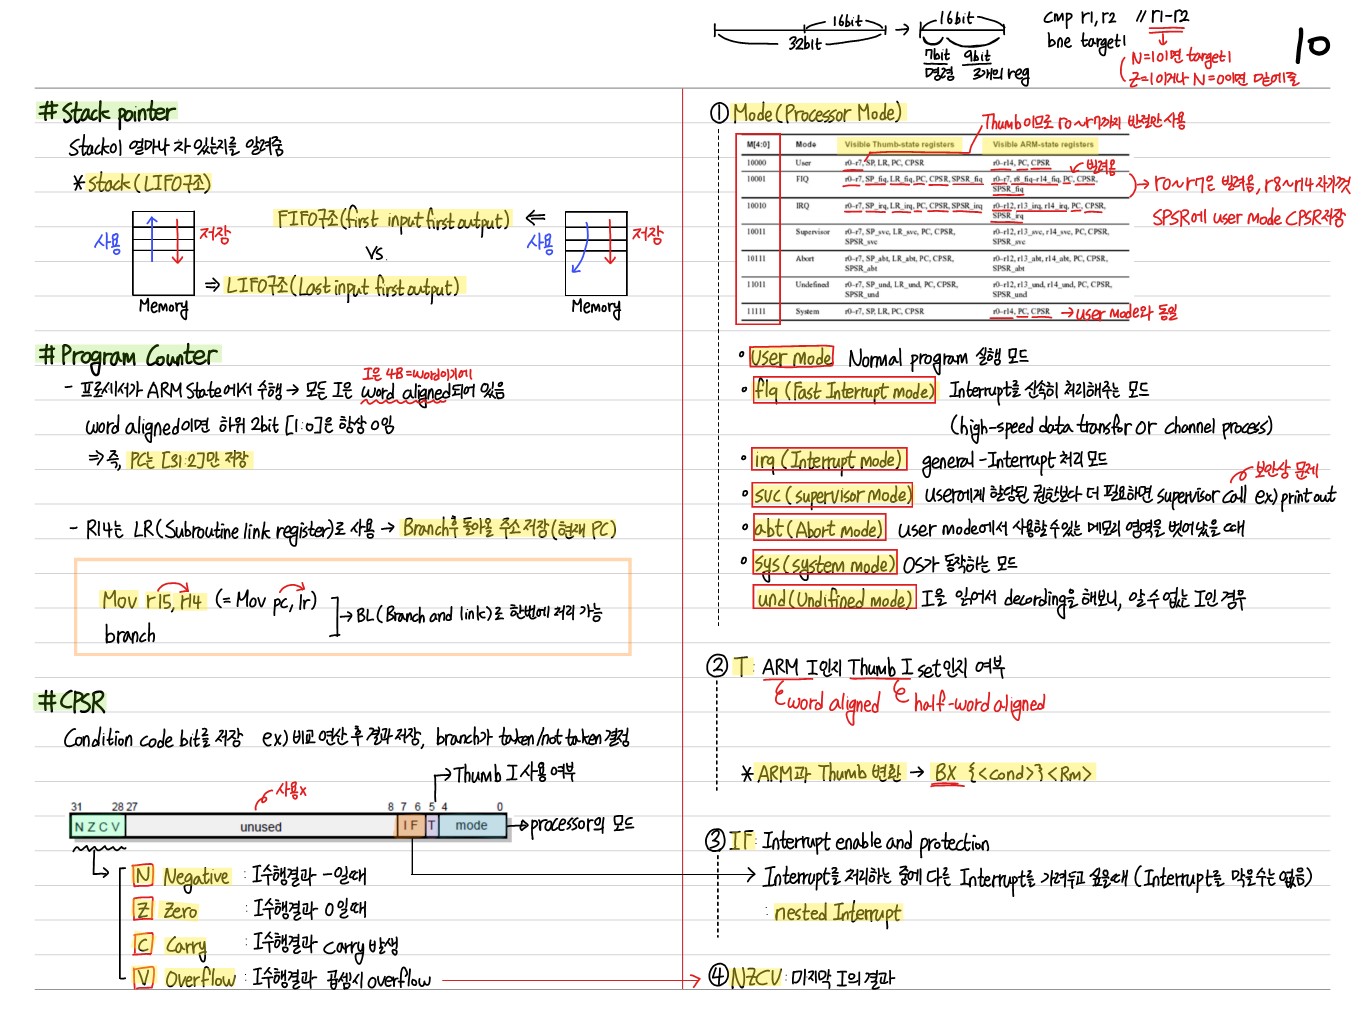 16bit
32bit
16bit
7bit
명령
9bit
3개의 reg
cmp r1, r2 // r1-r2
bne target1
N=1이면 target1
Z=1이거나 N=0이면 다음줄
10
# Stack pointer
Stack이 얼마나 차 있는지를 알려줌
* stack (LIFO구조)
사용
저장
Memory
FIFO구조(first input first output) ⇐
VS.
⇒ LIFO구조(Last input first output)
사용
저장
Memory
# Program Counter
I은 4B=word이기에
- 프로시서가 ARM State에서 수행 → 모든 I은 word aligned되어 있음
word aligned이면 하위 2bit [1:0]은 항상 0임
⇒ 즉, PC는 [31:2]만 저장
- R14는 LR(Subroutine link register)로 사용 → Branch후 돌아올 주소 저장(현재 PC)
Mov r15, r14 (= Mov pc, lr)
branch
→ BL(Branch and link)로 한번에 처리 가능
# CPSR
Condition code bit를 저장 ex) 비교 연산 후 결과 저장, branch가 taken/not taken 결정
→ Thumb I 사용 여부
사용x
31 28 27 8 7 6 5 4 0
N Z C V unused I F T mode
→ processor의 모드
N Negative : I수행결과 -일때
Z Zero : I수행결과 0일때
C Carry : I수행결과 carry 발생
V Overflow : I수행결과 곱셈시 overflow
① Mode (Processor Mode)
Thumb이므로 r0~r7까지 반절만 사용
M[4:0] Mode Visible Thumb-state registers Visible ARM-state registers
10000 User r0–r7, SP, LR, PC, CPSR r0–r14, PC, CPSR
빌려옴
10001 FIQ r0–r7, SP_fiq, LR_fiq, PC, CPSR, SPSR_fiq r0–r7, r8_fiq–r14_fiq, PC, CPSR,
SPSR_fiq
→ r0~r7은 빌려옴, r8~r14 자기꺼
SPSR에 user mode CPSR저장
10010 IRQ r0–r7, SP_irq, LR_irq, PC, CPSR, SPSR_irq r0–r12, r13_irq, r14_irq, PC, CPSR,
SPSR_irq
10011 Supervisor r0–r7, SP_svc, LR_svc, PC, CPSR, r0–r12, r13_svc, r14_svc, PC, CPSR,
SPSR_svc SPSR_svc
10111 Abort r0–r7, SP_abt, LR_abt, PC, CPSR, r0–r12, r13_abt, r14_abt, PC, CPSR,
SPSR_abt SPSR_abt
11011 Undefined r0–r7, SP_und, LR_und, PC, CPSR, r0–r12, r13_und, r14_und, PC, CPSR,
SPSR_und SPSR_und
11111 System r0–r7, SP, LR, PC, CPSR r0–r14, PC, CPSR
→ user mode와 동일
• User mode Normal program 실행 모드
• fiq (Fast Interrupt mode) Interrupt를 신속히 처리해주는 모드
(high-speed data transfer or channel process)
• irq (Interrupt mode) general-Interrupt 처리 모드
보안상 문제
• svc (supervisor mode) user에게 할당된 권한보다 더 필요하면 supervisor call ex) print out
• abt (Abort mode) User mode에서 사용할수있는 메모리 영역을 벗어났을 때
• sys (system mode) OS가 동작하는 모드
und (Undifined mode) I을 읽어서 decording을 해보니, 알 수 없는 I인 경우
② T : ARM I인지 Thumb I set인지 여부
word aligned
half-word aligned
* ARM과 Thumb 변환 → BX {<cond>} <Rm>
③ IF : Interrupt enable and protection
Interrupt를 처리하는 중에 다른 Interrupt를 가려두고 싶을때 (Interrupt를 막을수는 없음)
: nested Interrupt
④ NZCV : 마지막 I의 결과